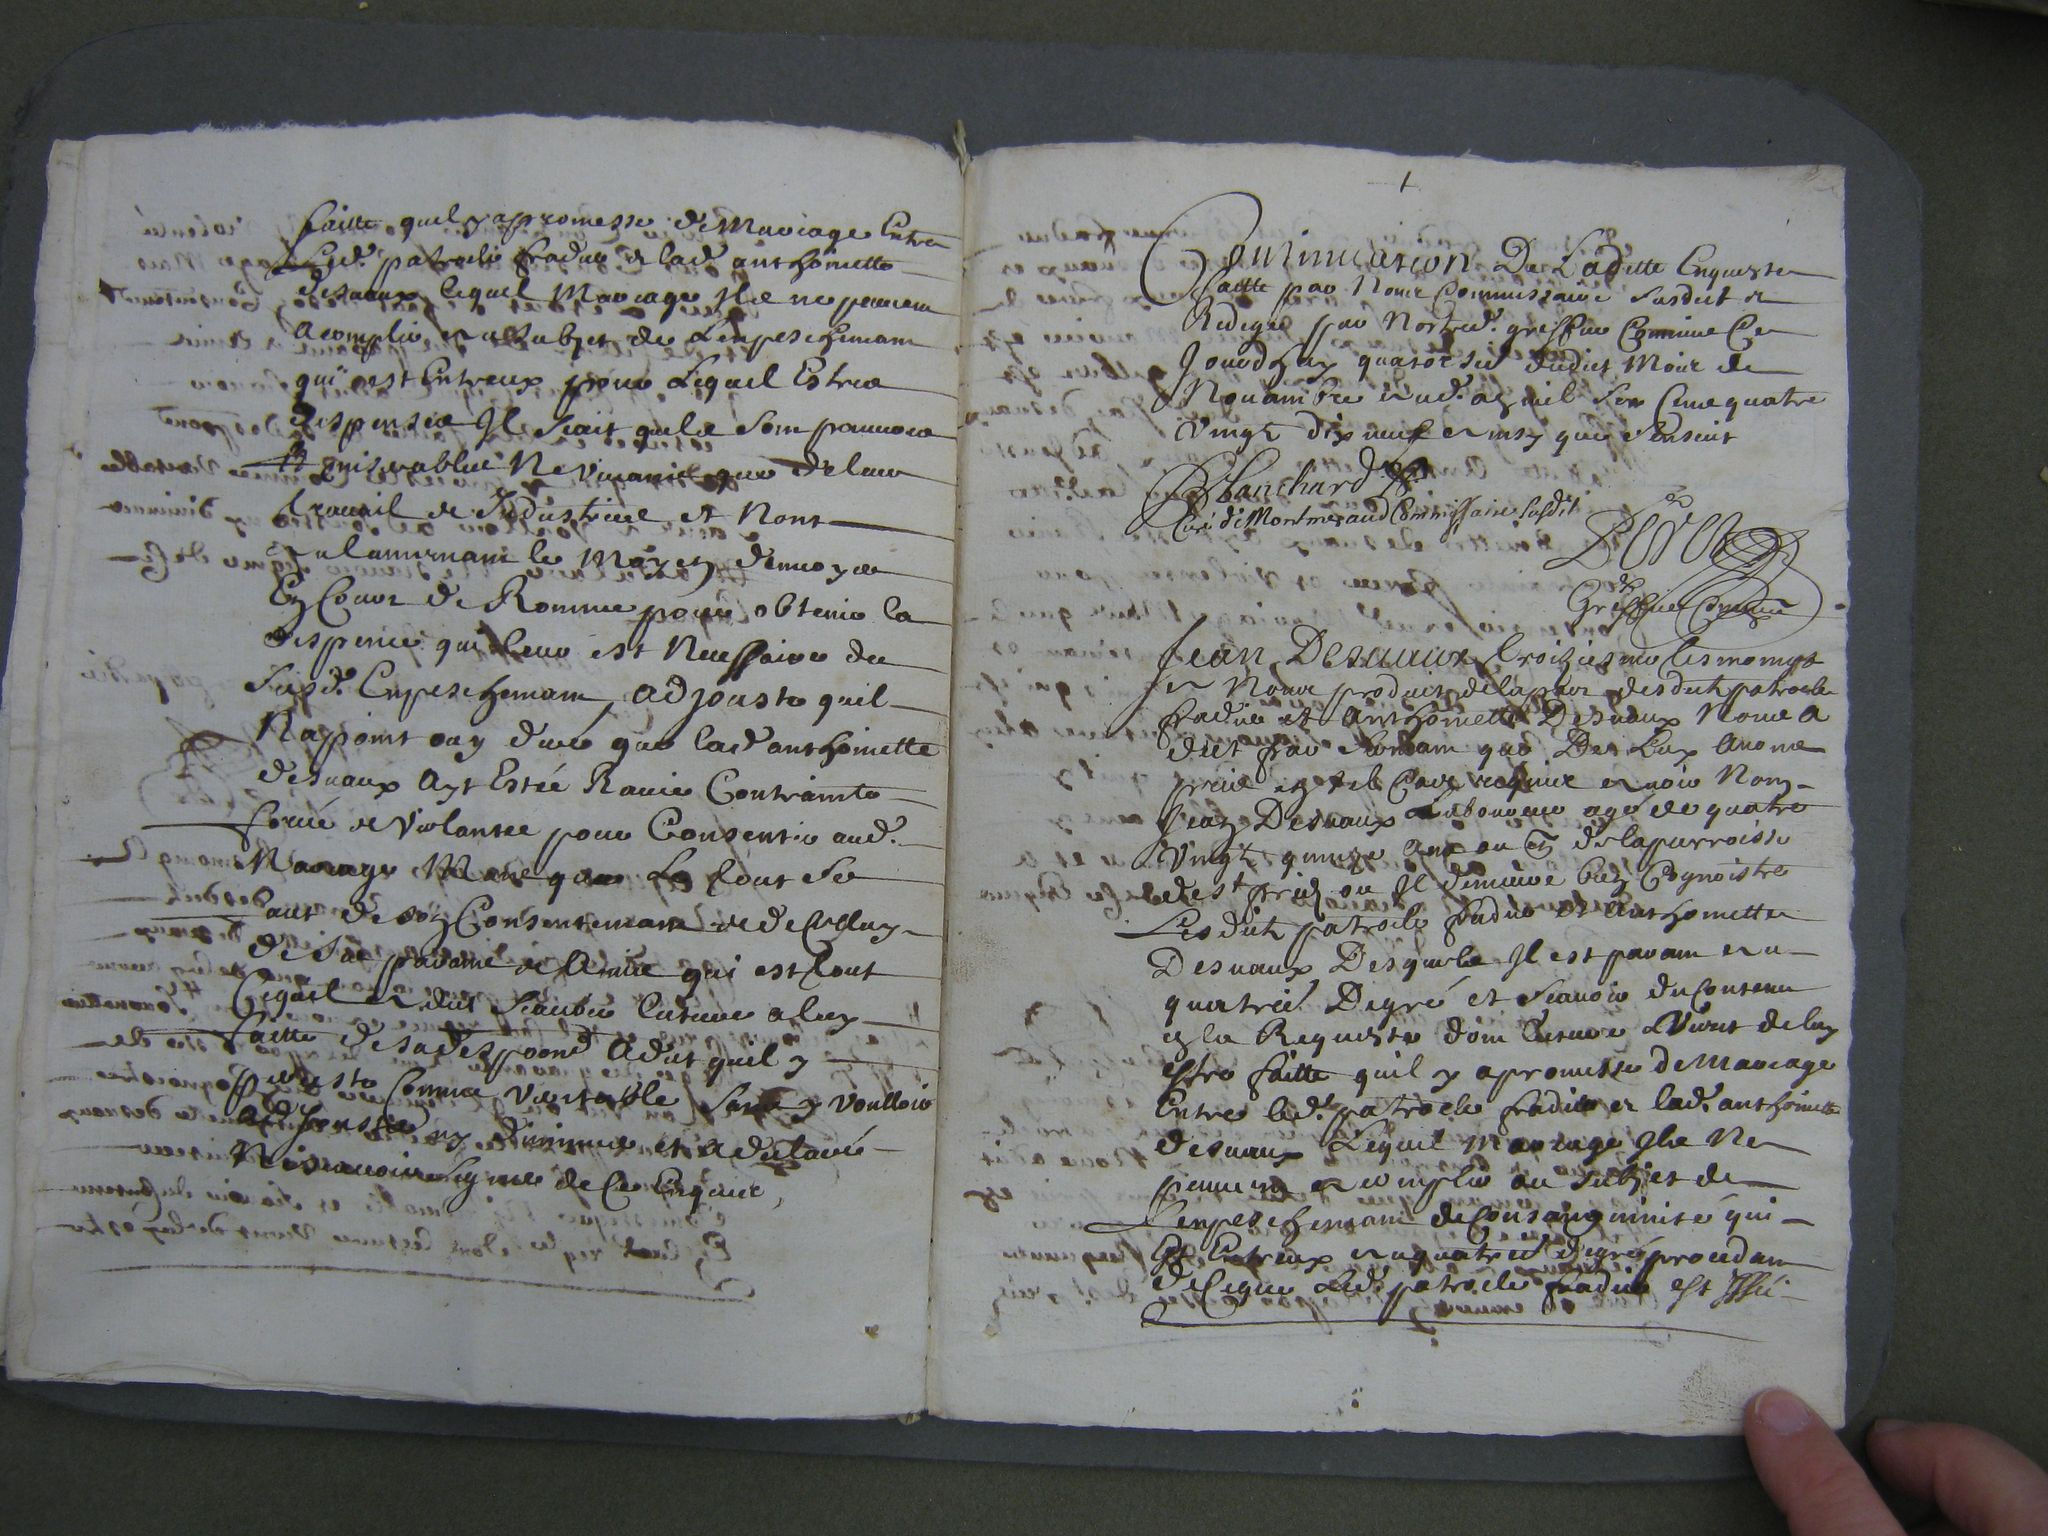 faitte quil y a promesse de Mariage Entre
Led. patrocle fradin et lad. anthoinette
desnaux lequel Mariage Ils ne peuvent
acomplir au subjet de Lenpeschemant
qui est Entreux pour Lequel Estre
dispensée Il scait quils sont pauvres
et miserables Ne Vivants que de leur
travail et Industrie et Nont
le Moyen denvoyer
En Cour de Romme pour obtenir la
dispence qui leur est Necessaire du
susd. Enpeschemant, adjouste quil
Na point ouy dire que lad anthoinette
desnaux Ayt Estée Ravie Contrainte
forcée et Violantee pour Consentir aud.
Mariage Mais que Le tout se
fait de son Consentemant et de Celluy
de ses parans et Amis qui est tout
Ce quil a dit scavoir Lecture a luy
faitte de sa depposon A dit quil y
perciste Comme Veritable sans y voulloir
adjouster ny diminuer et a declaré
Ne scavoir signer de Ce Enquis,
1
Continuation De Laditte Enqueste
faitte par Nous Commissaire susdit et
Redigée par Nostred. greffier Commis Ce
Jourdhuy quatorsie dudict Mois de
Novambre aud. an mil six Cens quatre
Vingt dix neuf ainsy que sensuit
Blanchard
Curé de Montmeraud Commissaire susdit
Greffier Commis
Jean Desnaux troisiesme tesmoingt
a Nous produit de la part desdits patrocle
fradin et anthoinette Desnaux Nous a
dict par sermant que De Luy Avons
pris en tel Cas requis avoir Nom
Jean Desnaux Laboureur agé de quatre
Vingt quinze ans ou en de la parroisse
de st priez ou Il demeure bien Cognoistre
Lesdits patrocle fradin et anthoinette
Desnaux Desquels Il est parant au
quatrie Degré et scavoir du Contenu
en la Requeste dont lecture a Vient de luy
estre faitte quil y a promesse de Mariage
Entre led. patrocle fradin et lad. anthoinette
desnaux Lequel Mariage Ils Ne
peuvent acomplir au subjet de
Lenpeschemant de Consanguinité qui
Est Entreux au quatrie degré procedant
de Ce que Led. patrocle fradin est Issu